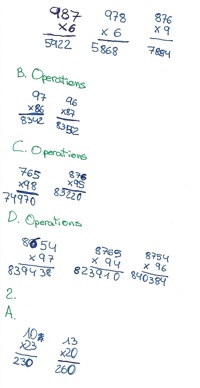 987 978 876
x6 x 6 x 9
5922 5868 7884
B. Operations
97 96
x86 x87
8342 8352
C. Operations
765 876
x98 x95
74970 83220
D. Operations
8654 8765 8754
x 97 x 94 x 96
839438 823910 840384
2.
A.
10 13
x23 x20
230 260